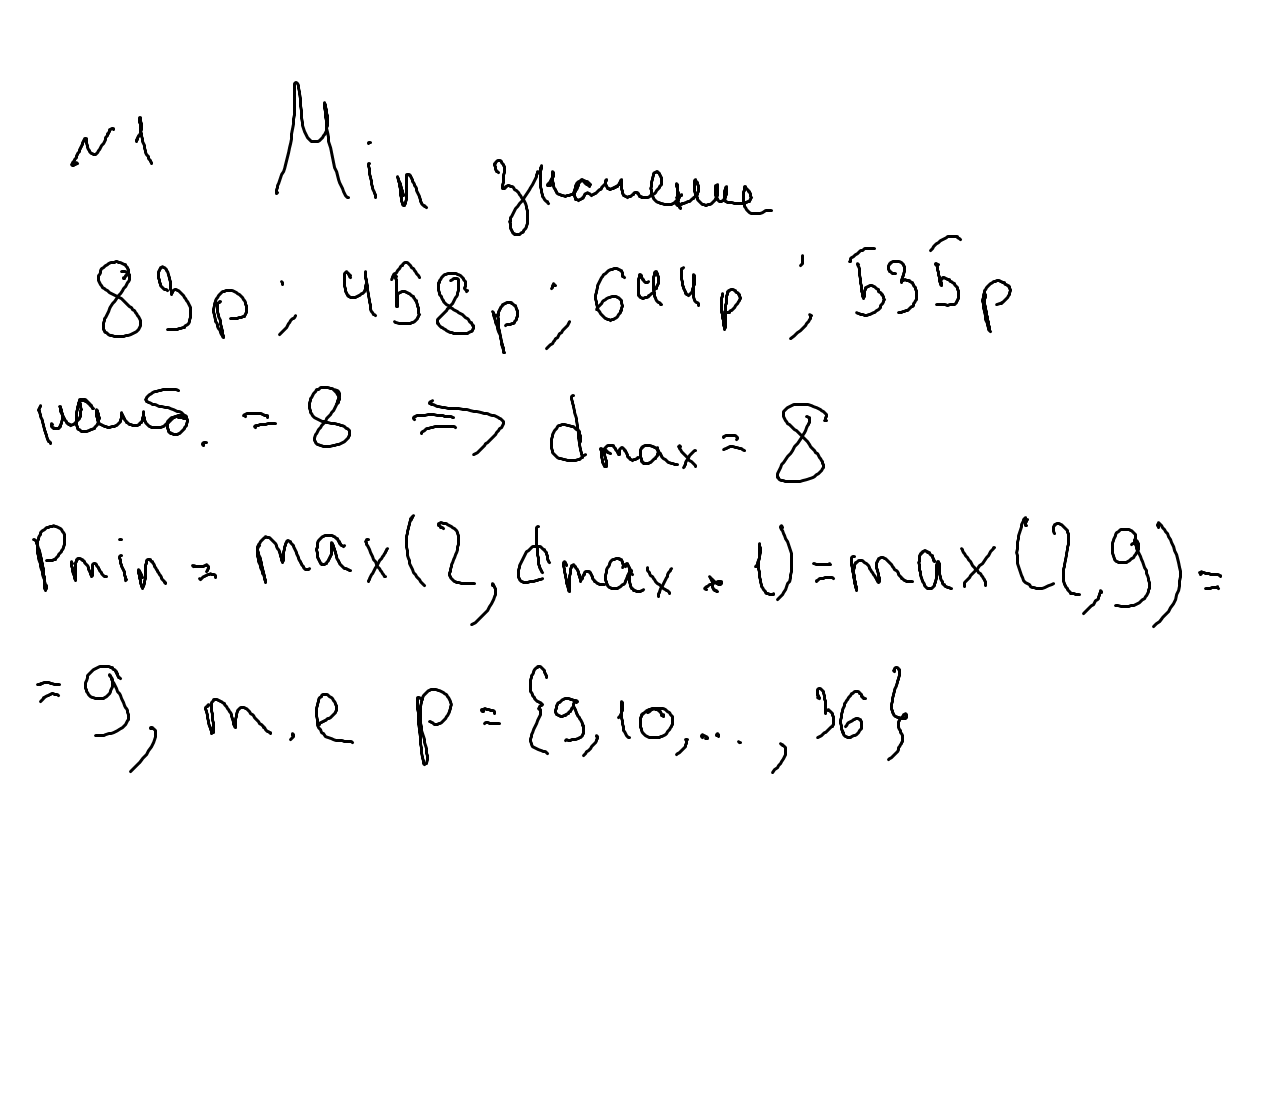 №1 Min значение
83р; 458р; 644р; 535р
наиб. = 8 => dmax = 8
Pmin = max(2, dmax + 1) = max(2,9) =
= 9, т.е p = {9,10,..., 36}